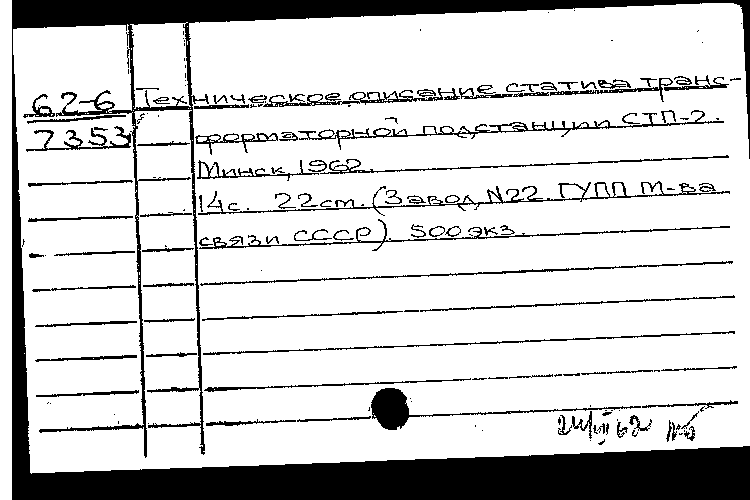 62-6 Техническое описание статива транс-
7353 форматорной подстанции СТП-2.
Минск, 1962.
14с. 22см. (Завод N22. ГУПП М-ва
связи СССР). 500 экз.